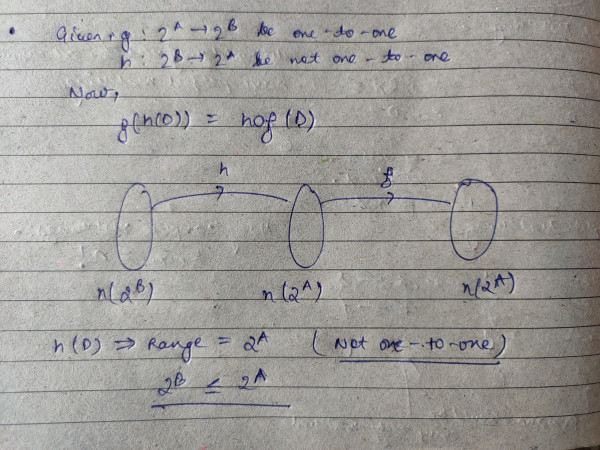 • Given, g : 2^A → 2^B be one-to-one
h : 2^B → 2^A be not one-to-one
Now,
g(h(D)) = hog(D)
h g
n(2^B) n(2^A) n(2^A)
h(D) ⇒ Range = 2^A (Not one-to-one)
2^B ≤ 2^A